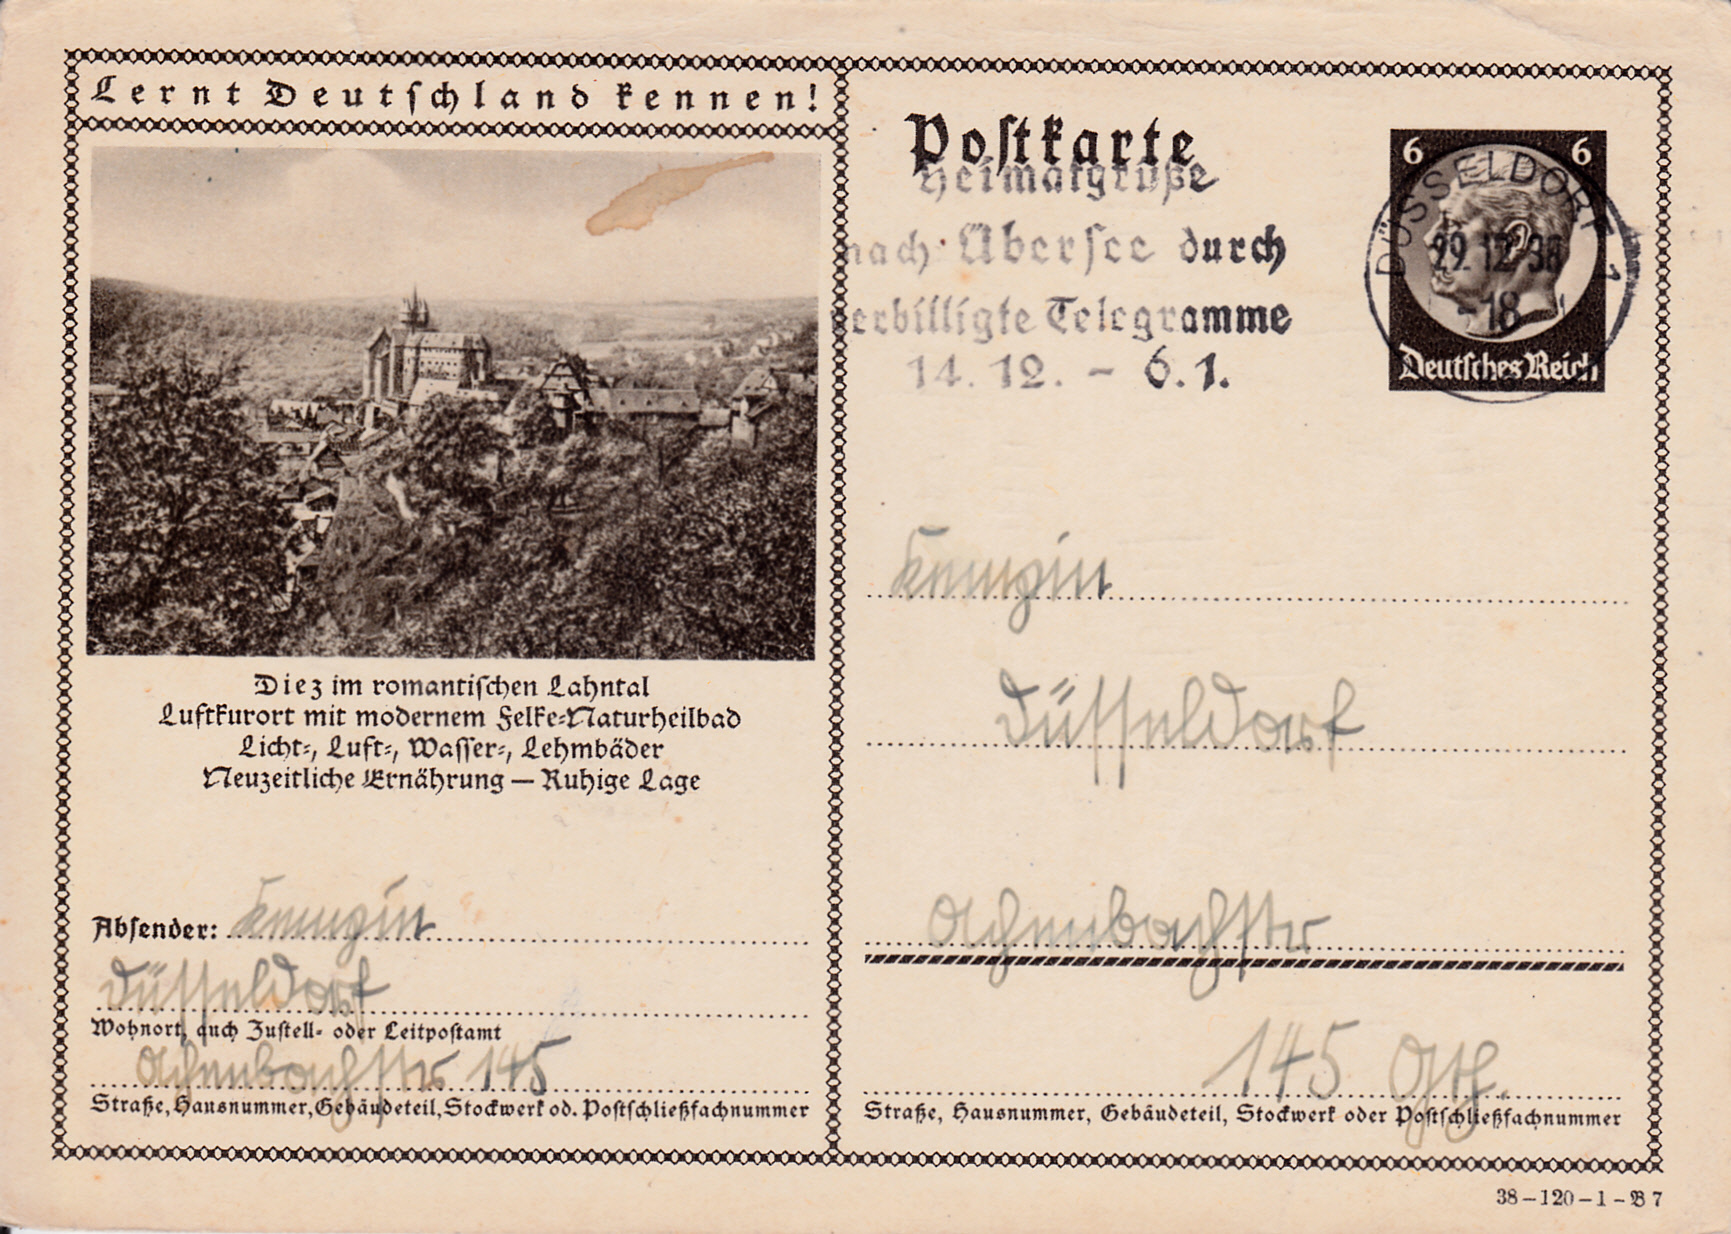 Lernt Deutschland kennen!
Diez im romantischen Lahntal
Luftkurort mit modernem Felke-Naturheilbad
Licht-, Luft-, Wasser-, Lehmbäder
Neuzeitliche Ernährung — Ruhige Lage
Absender:
Düsseldorf
Wohnort, auch Zustell- oder Leitpostamt
Achenbachstr 145
Straße, Hausnummer, Gebäudeteil, Stockwerk od. Postschließfachnummer
Postkarte
Heimatgrüße
nach Übersee durch
verbilligte Telegramme
14.12. - 6.1.
6 6
DÜSSELDORF 1
29.12.38
-18
Deutsches Reich
Düsseldorf
Achenbachstr
145
Straße, Hausnummer, Gebäudeteil, Stockwerk oder Postschließfachnummer
38-120-1-B 7